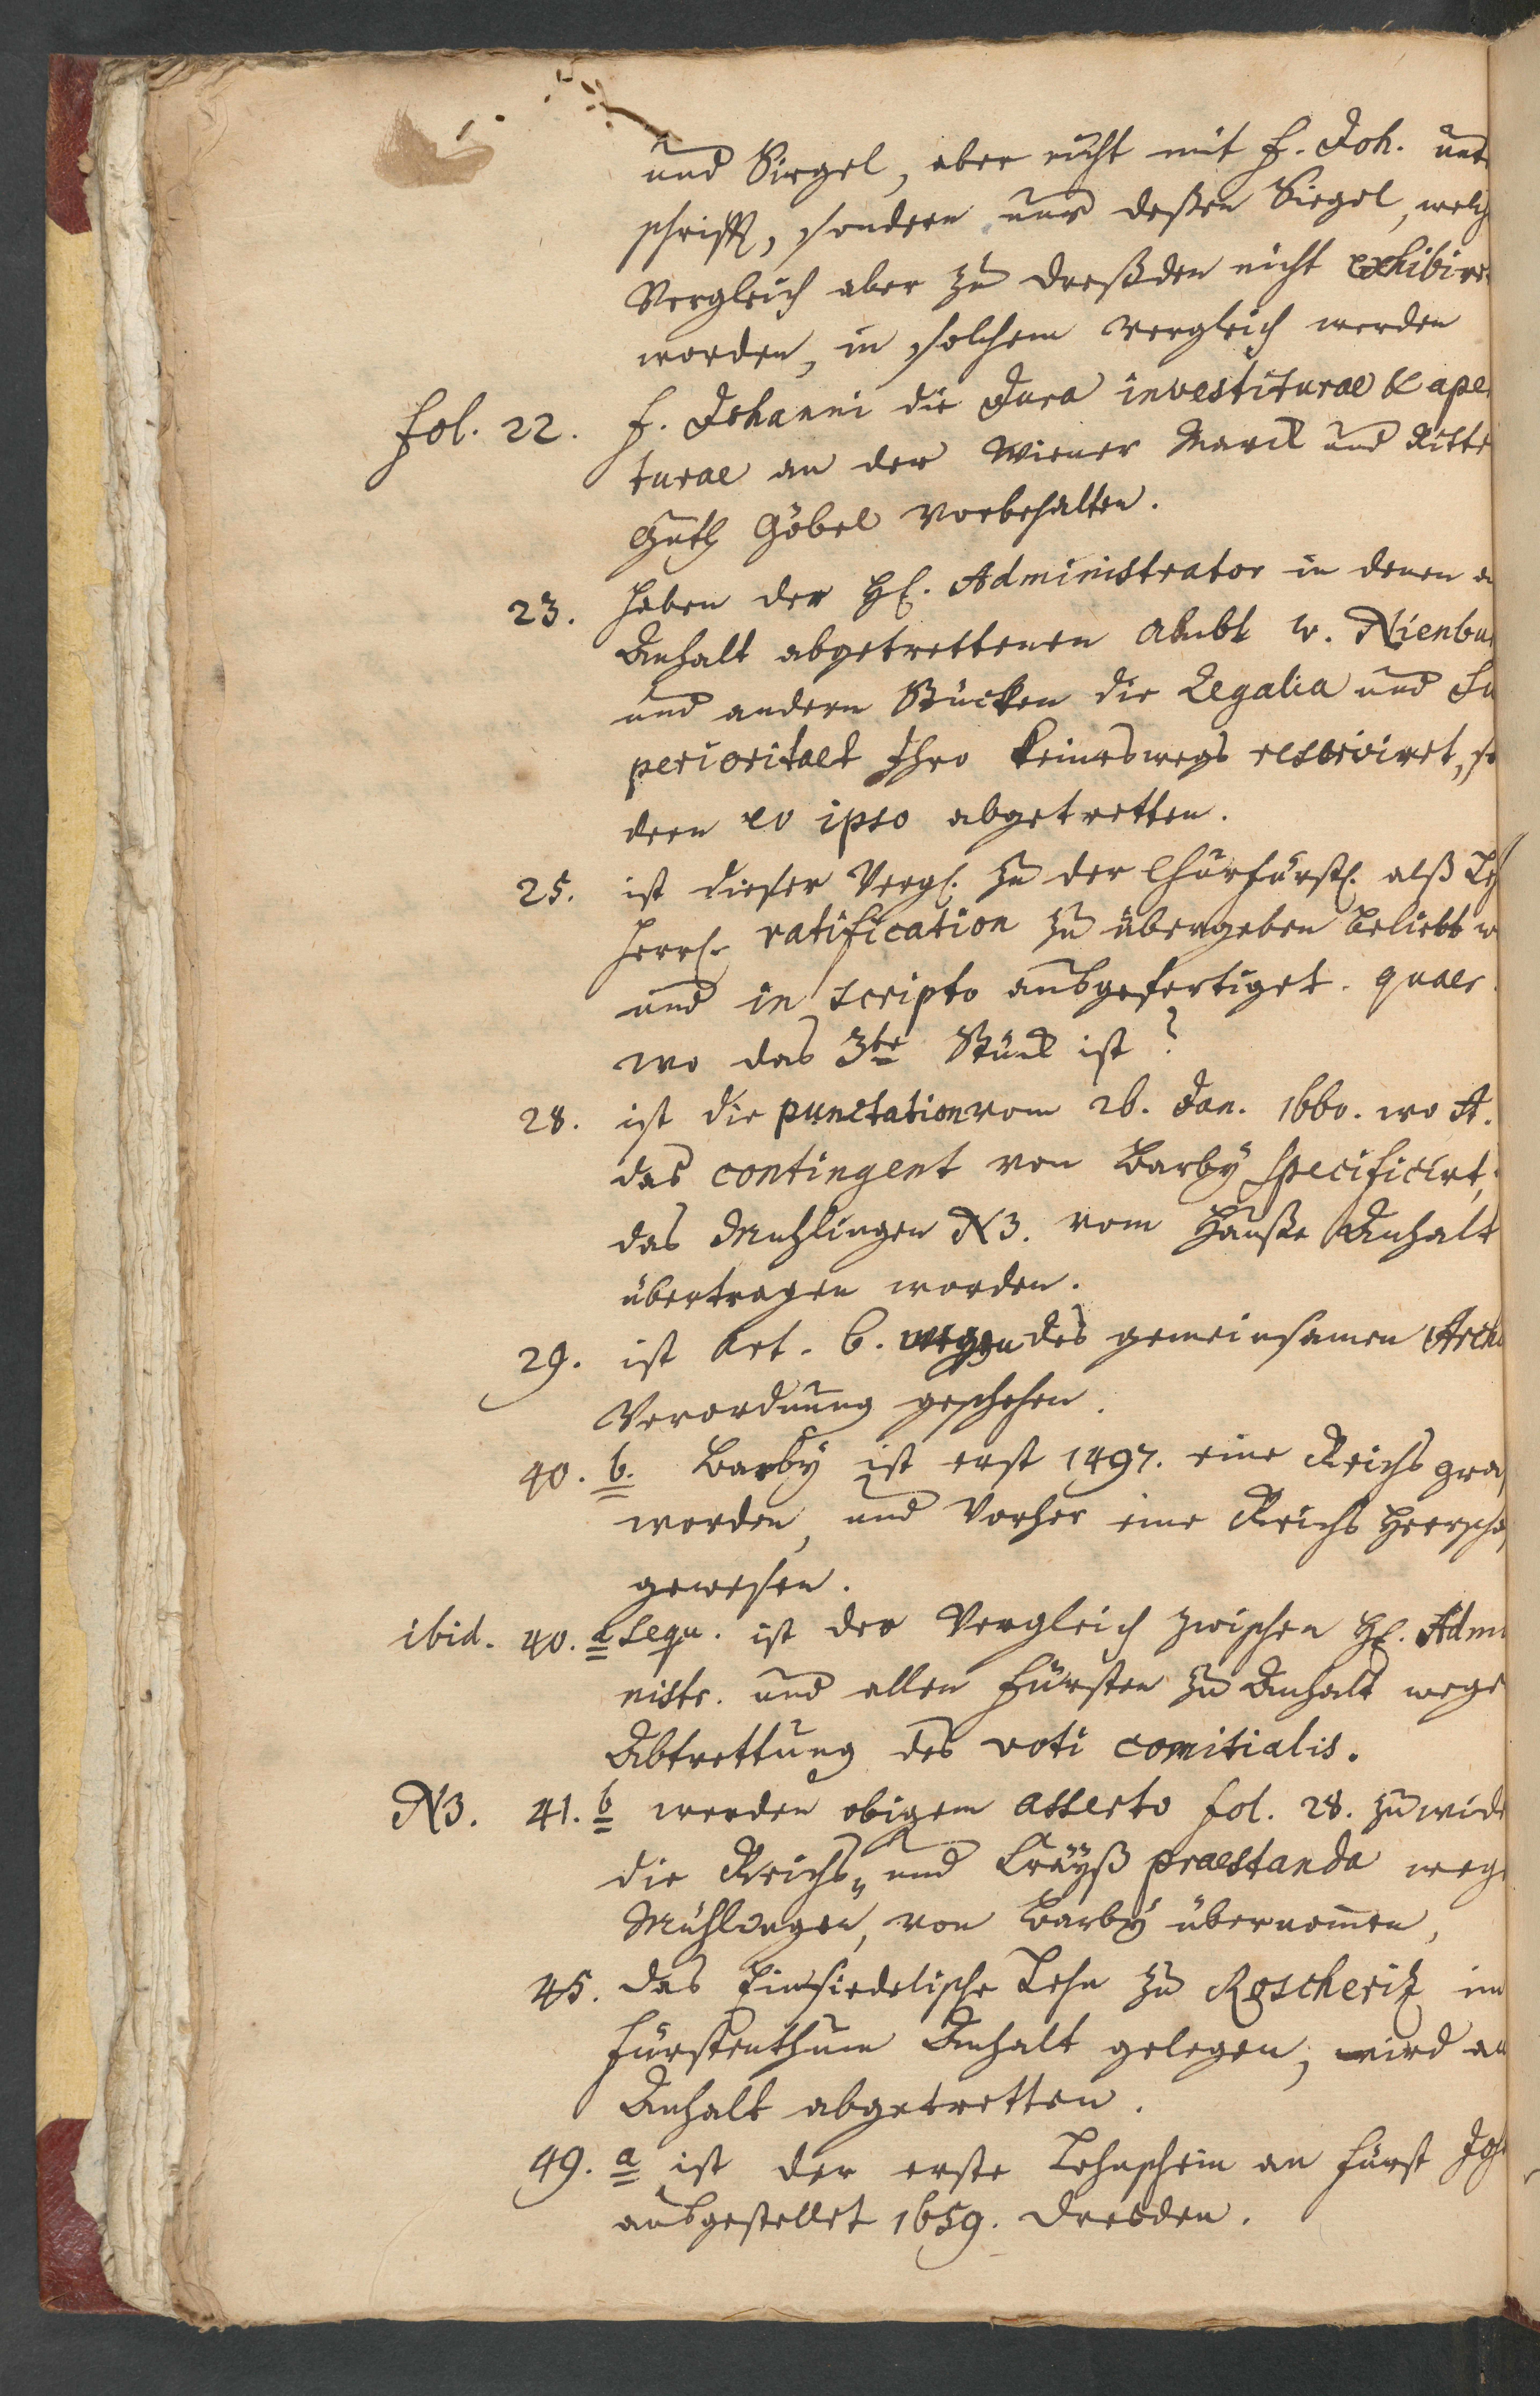 und Siegel, aber nicht mit F. Joh. unt
schrifft, sondern nur deßen Siegel, welch
Vergleich aber zu Dreßden nicht exhibire
worden, in solchem Vergleich werden
fol. 22. F. Johanni die Jura investiturae & aper
turae an der Wiener Marck und Ritte
Guth Göbel vorbehalten.
23. haben der H. Administrator in denen a
Anhalt abgetrettenen Ambt w. Nienbu
und andern Stücken die Regalia und Su
perioritaet Ihro keineswegs reserviret, so
dern eo ipso abgetretten.
25. ist dieser Vergl. zu der Churfürstl. alß Leh
herrl. ratification zu übergeben beliebt w
und in scripto ausgefertiget. quaer.
wo das 3te Stück ist?
28. ist die punctation vom 26. Jan. 1660. wo A.
das contingent von Barbÿ specificirt,
das Muhlingen NB. vom Hauße Anhalt
übertragen worden.
29. ist Art. 6. wegen des gemeinsamen Archi
Verordnung geschehen.
40. b. Barbÿ ist erst 1497. eine Reichs graf
worden, und Vorher eine Reichs Herrscha
gewesen.
ibid. 40. a sequ. ist der Vergleich zwischen H. Admi
nistr. und allen Fürsten zu Anhalt wege
Abtrettung des voti comitialis.
NB. 41. b werden obigem asserto fol. 28. zuwide
die Reichs- und Cräÿß praestanda wege
Mühlingen, von Barbÿ übernommen,
45. das Einsiedelische Lehn zu Roscheriz im
Fürstenthum Anhalt gelegen, wird an
Anhalt abgetretten.
49. a ist der erste Lehnschein an Fürst Joh
ausgestellet 1659. Dresden.